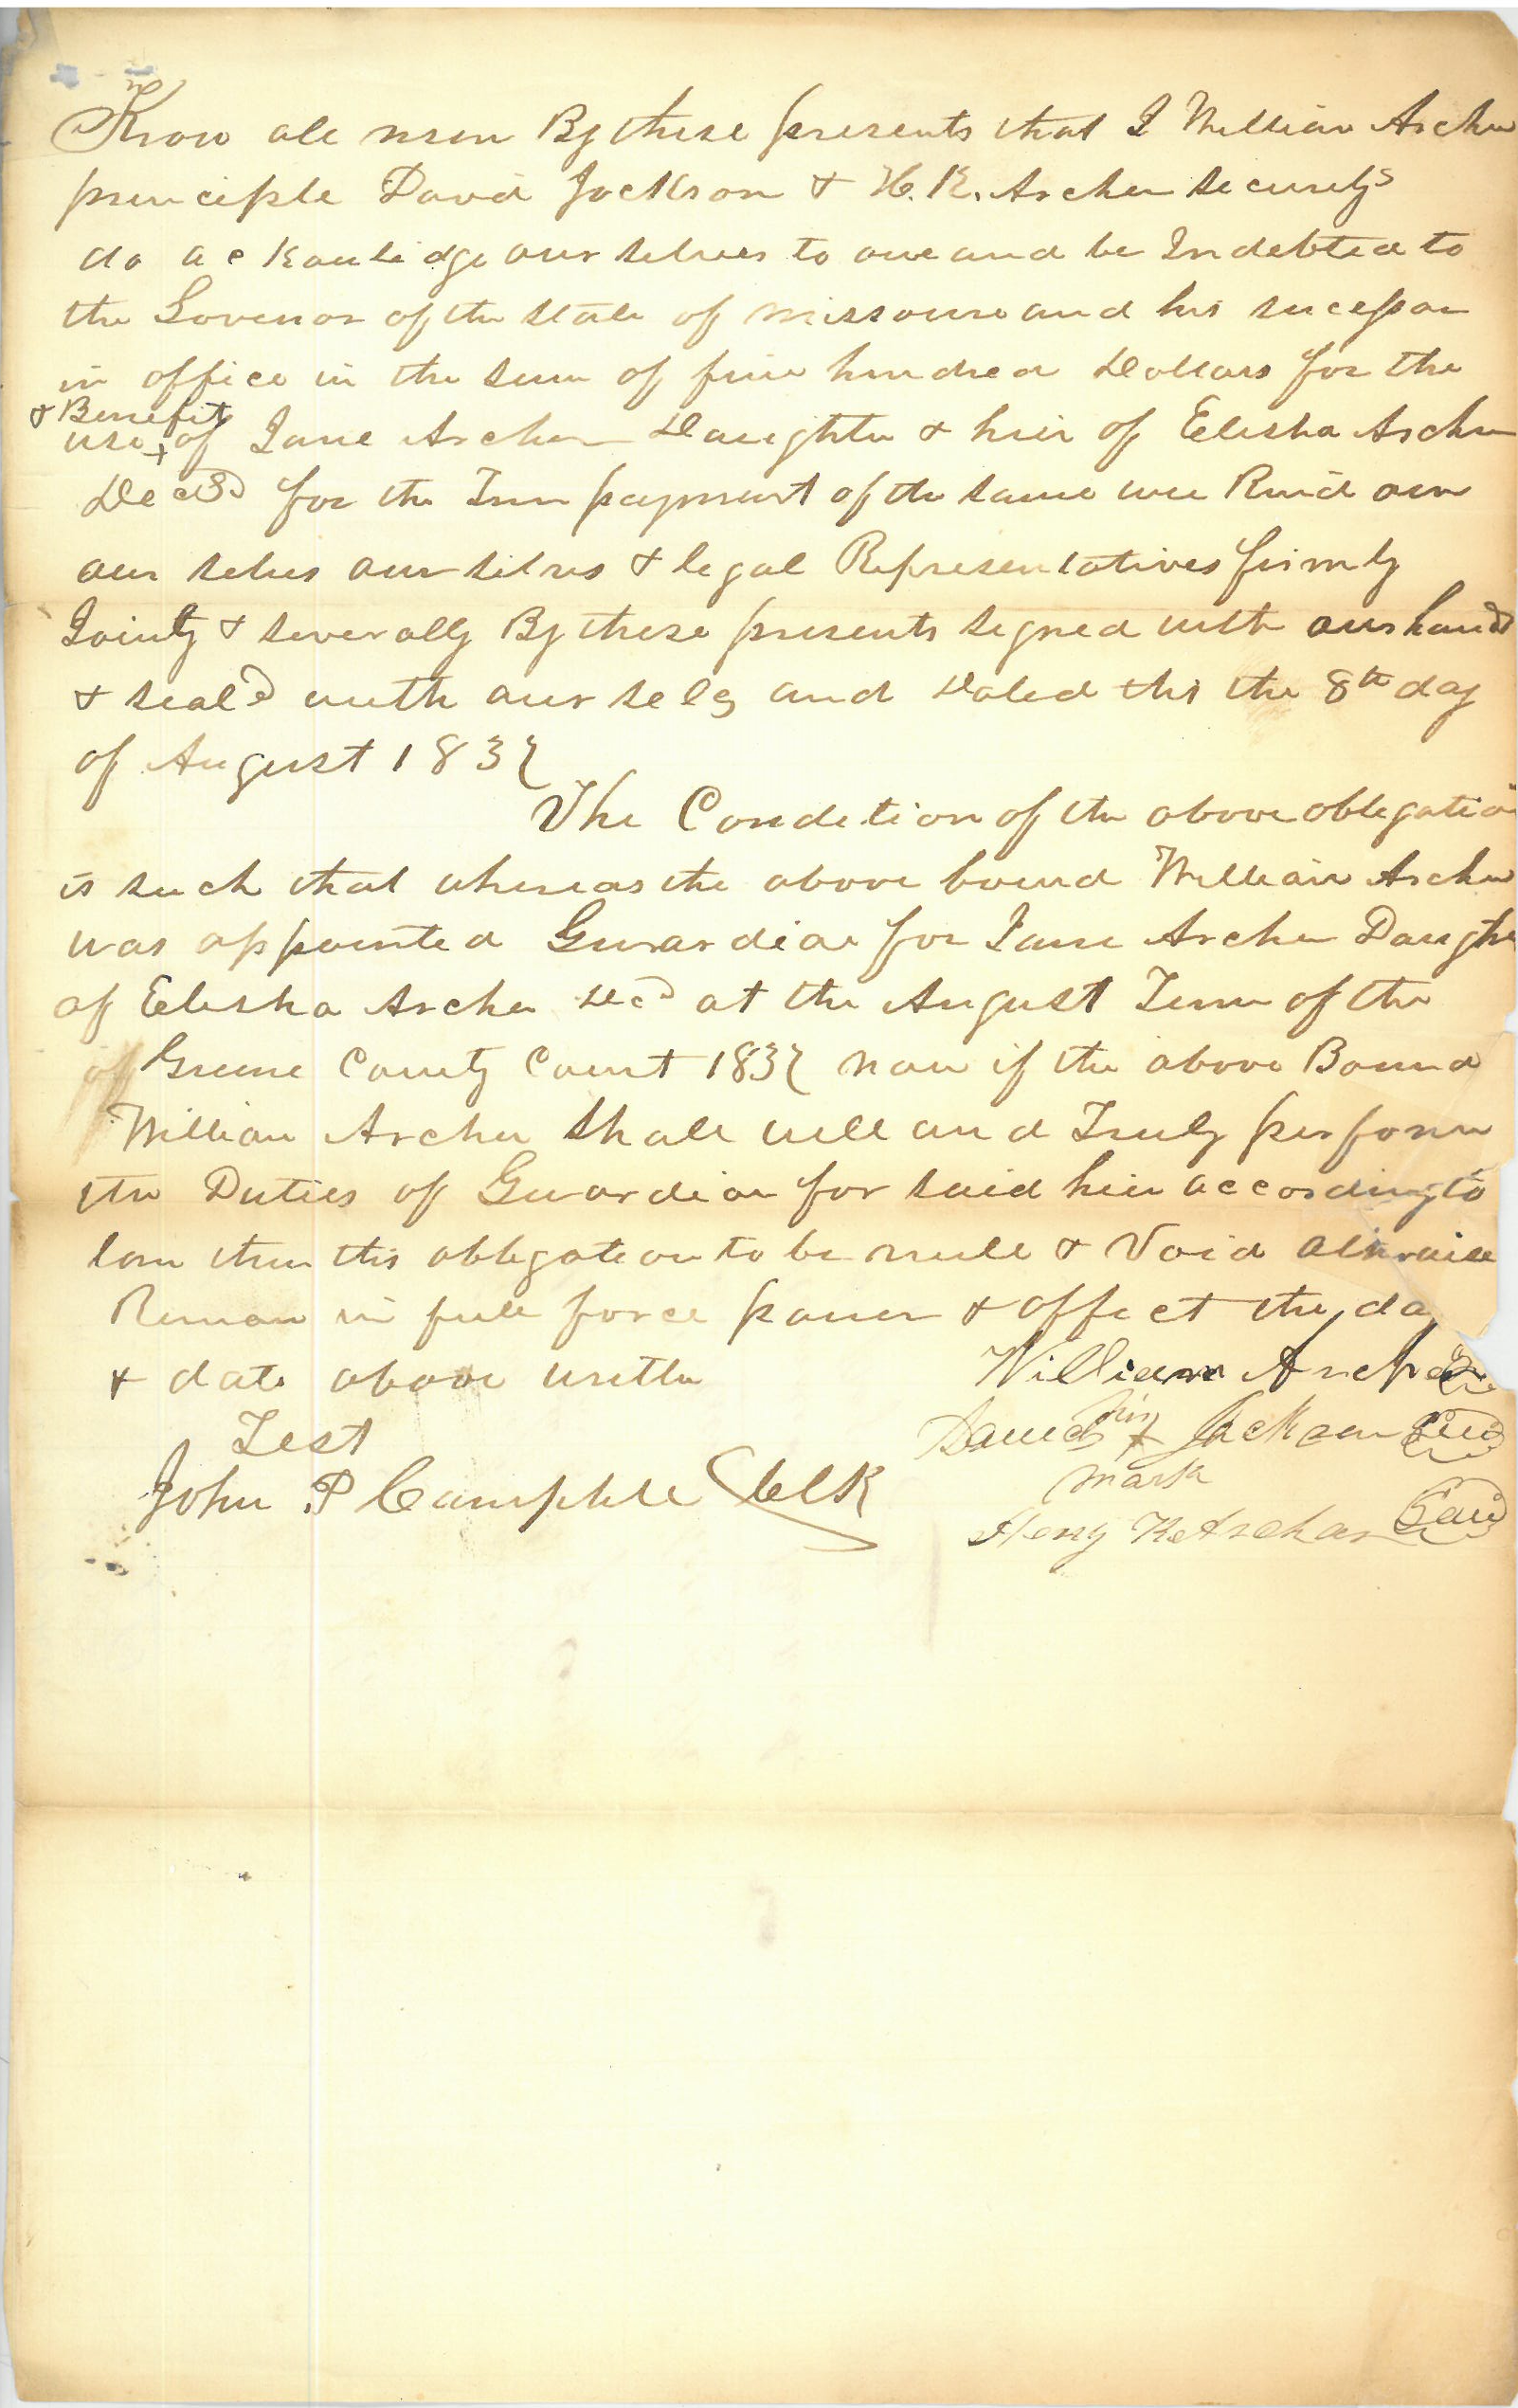 Know all men By these presents that I William Archer
principle David Jackson & H. K. Archer securitys
do acknowlidge our selves to owe and be Indebted to
the Govenor of the state of missouri and his successor
in office in the sum of five hundred Dollars for the
& Benefit
use + of Jane Archer Daughter & heir of Elisha Archer
Decsd for the True payment of the same we Bind our
our selves our selves & legal Representatives firmly
Jointy & severally By these presents signed with our hands
& seald with our sels and Dated this the 8th day
of August 1837
The Condetion of the above obligation
is such that whereas the above bound William Archer
was appointed Guardian for Jane Archer Daughter
of Elisha Archer Decd at the August Term of the
of Greene County Court 1837 now if the above Bound
William Archer Shall well and Truly perform
the Duties of Guardian for said heir according to
law then this obligation to be null & Void otherwise
Remain in full force power & affect the day
& date above written
William Archer
Test
his
David x Jackson Seal
mark
John P Campbell Clk
Henry K Archer Seal